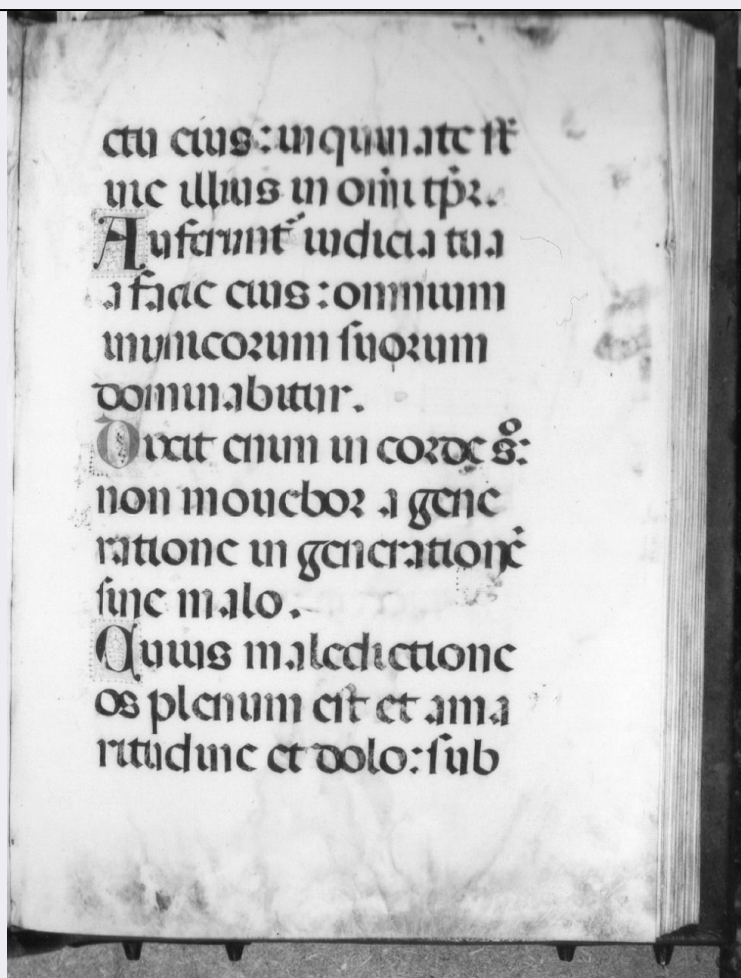 ctu eius: inquinate st̄
uie illius in om̄i tp̄r.
Auferunt᷑ iudicia tua
a facie eius: omnium
inimicorum suorum
dominabitur.
Dixit enim in corde s̊:
non mouebor a gene
ratione in generationē
sine malo.
Cuius maledictione
os plenum est et ama
ritudine et dolo: sub